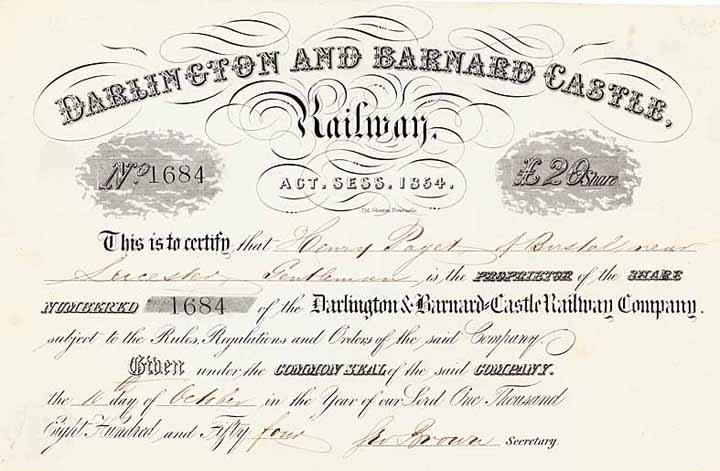 DARLINGTON AND BARNARD CASTLE,
Railway.
No 1684
ACT. SESS. 1854.
£20 Share
This is to certify that Henry Paget of Birstall near
Leicester Gentleman is the PROPRIETOR of the SHARE
NUMBERED 1684 of the Darlington & Barnard=Castle Railway Company.
subject to the Rules, Regulations and Orders of the said Company.
Given under the COMMON SEAL of the said COMPANY.
the 10th day of October in the Year of our Lord One Thousand
Eight Hundred and Fifty four Geo Brown Secretary.